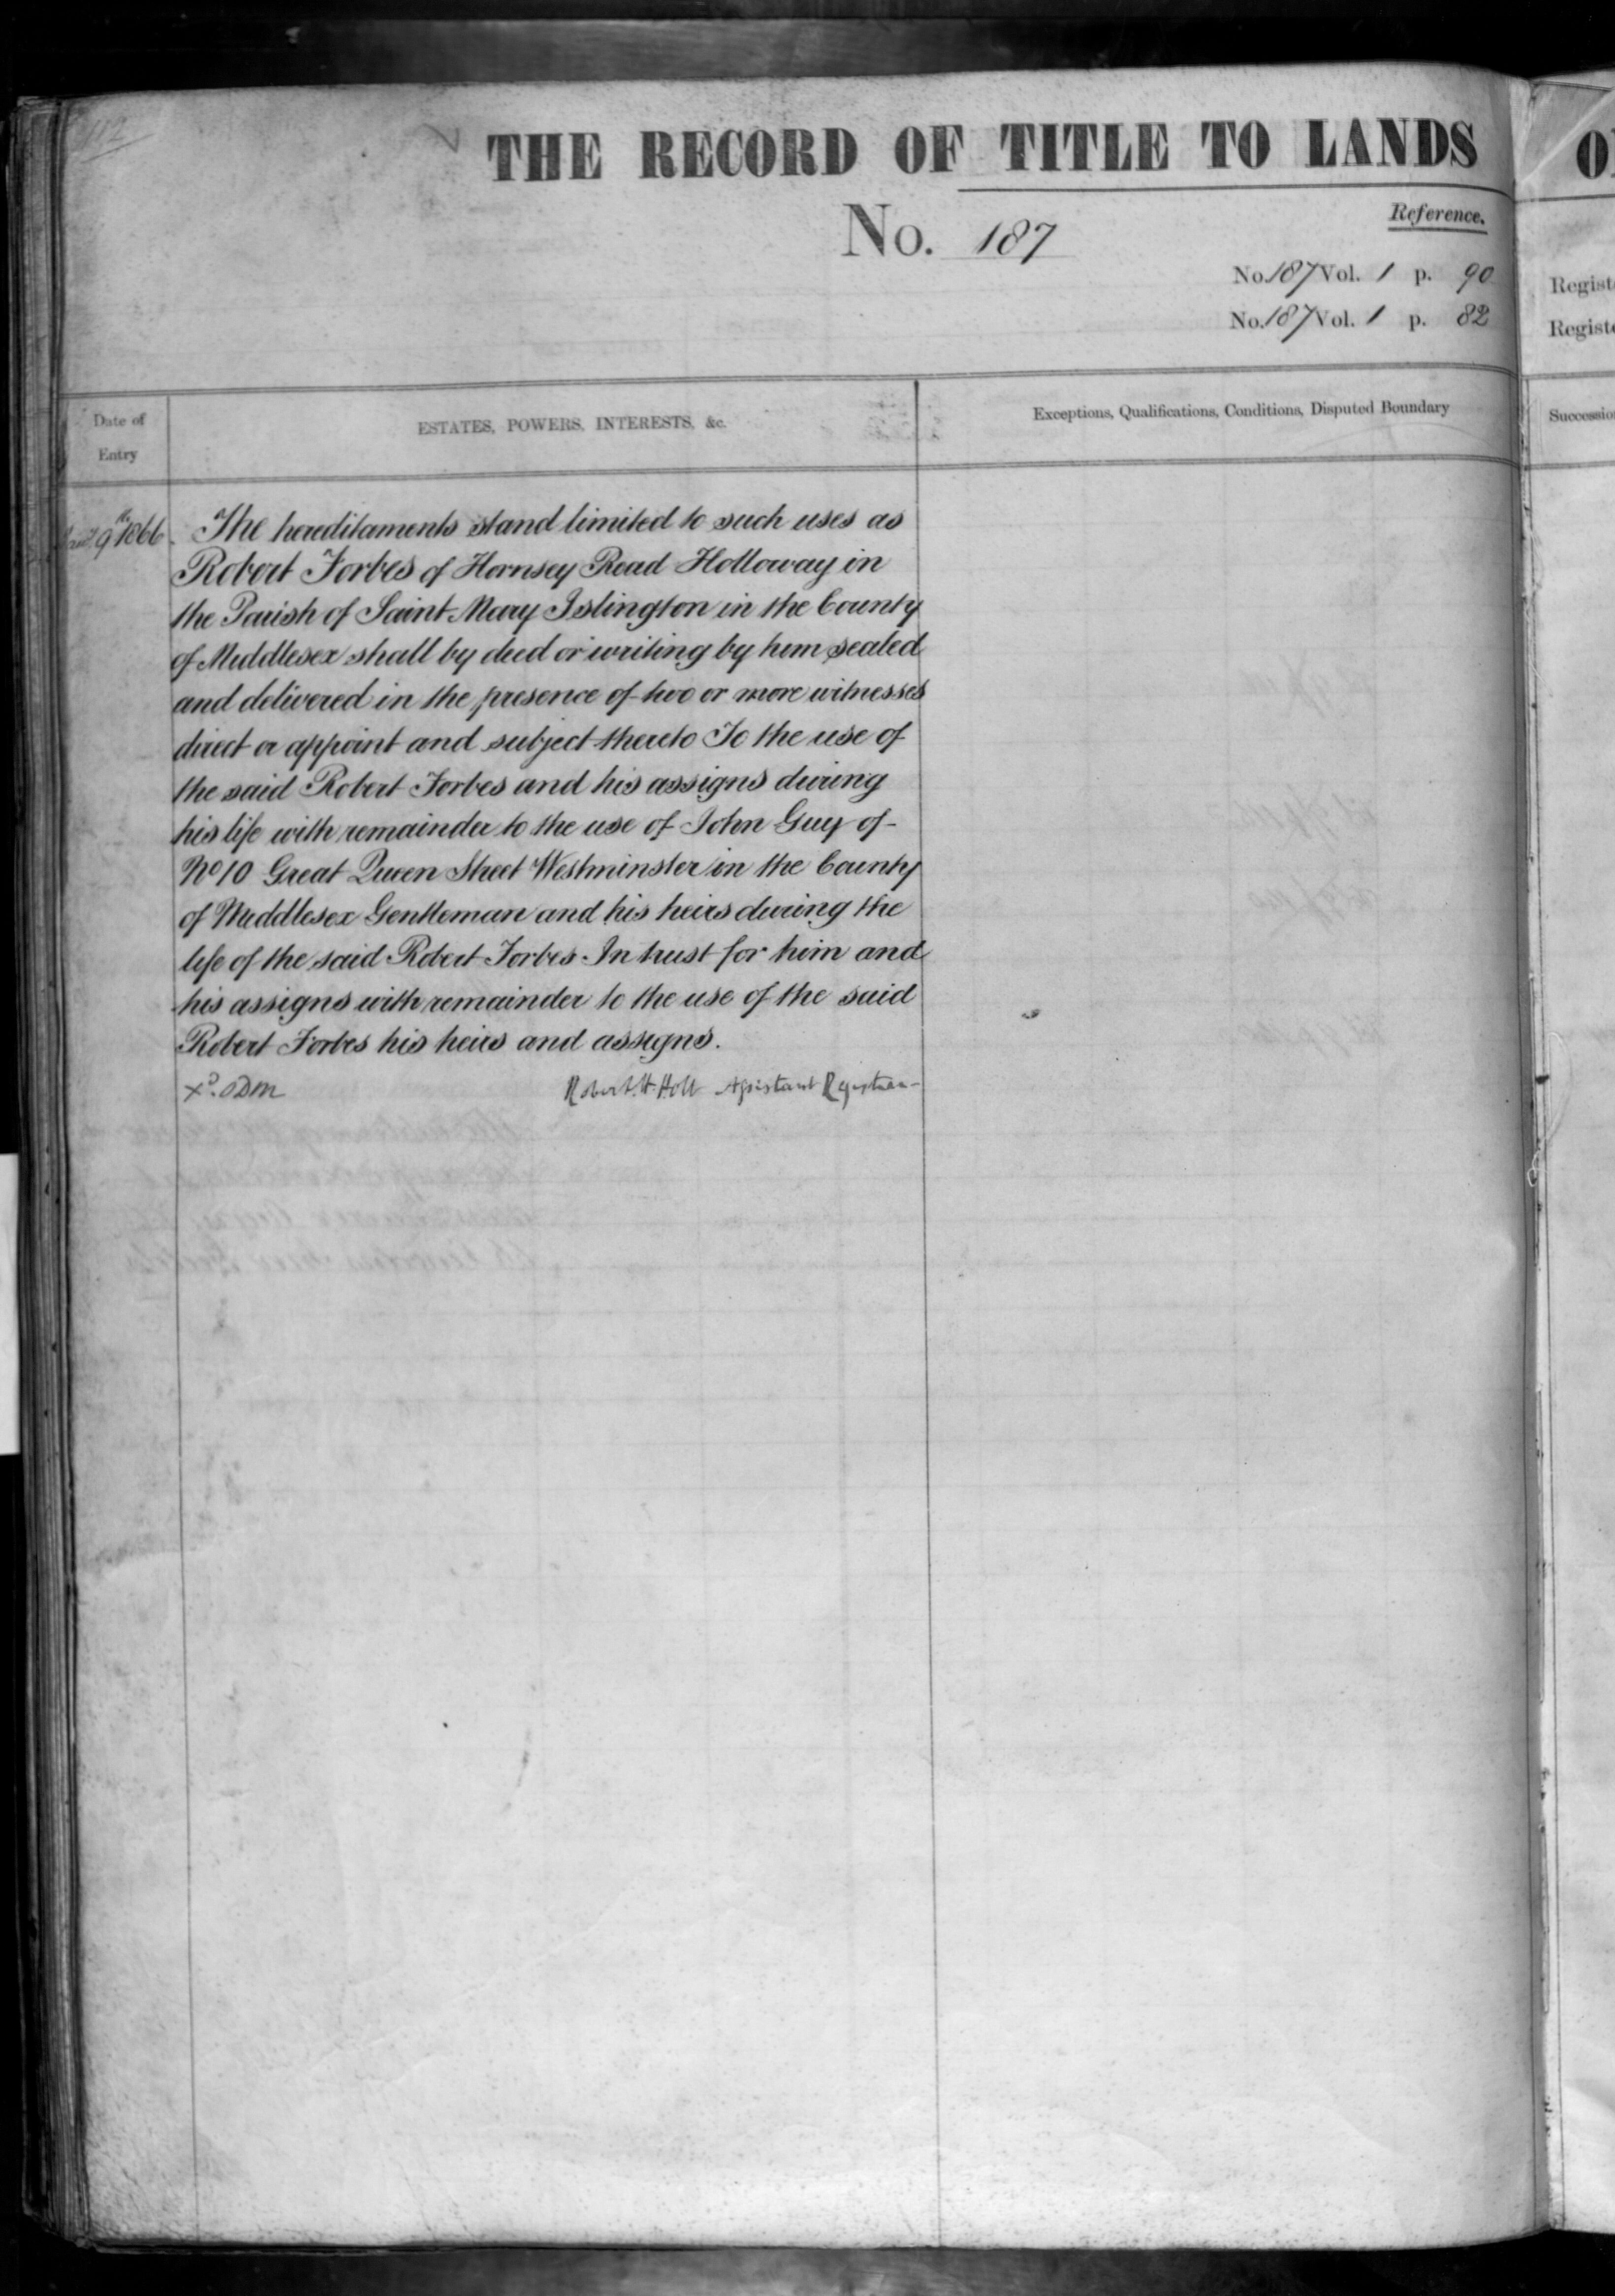 112
THE RECORD OF TITLE TO LANDS
No. 187
Reference.
No. 187 Vol. 1 p. 90
No. 187 Vol. 1 p. 82
Date of Entry
ESTATES, POWERS, INTERESTS, &c.
Exceptions, Qualifications, Conditions, Disputed Boundary
9th 1866. The hereditaments stand limited to such uses as
Robert Forbes of Hornsey Road Holloway in
the Parish of Saint Mary Islington in the County
of Middlesex shall by deed or writing by him sealed
and delivered in the presence of two or more witnesses
direct or appoint and subject thereto To the use of
the said Robert Forbes and his assigns during
his life with remainder to the use of John Guy of
No 10 Great Queen Street Westminster in the County
of Middlesex Gentleman and his heirs during the
life of the said Robert Forbes In trust for him and
his assigns with remainder to the use of the said
Robert Forbes his heirs and assigns.
Robert. H. Holt Assistant Registrar
Regist
Regist
Successio